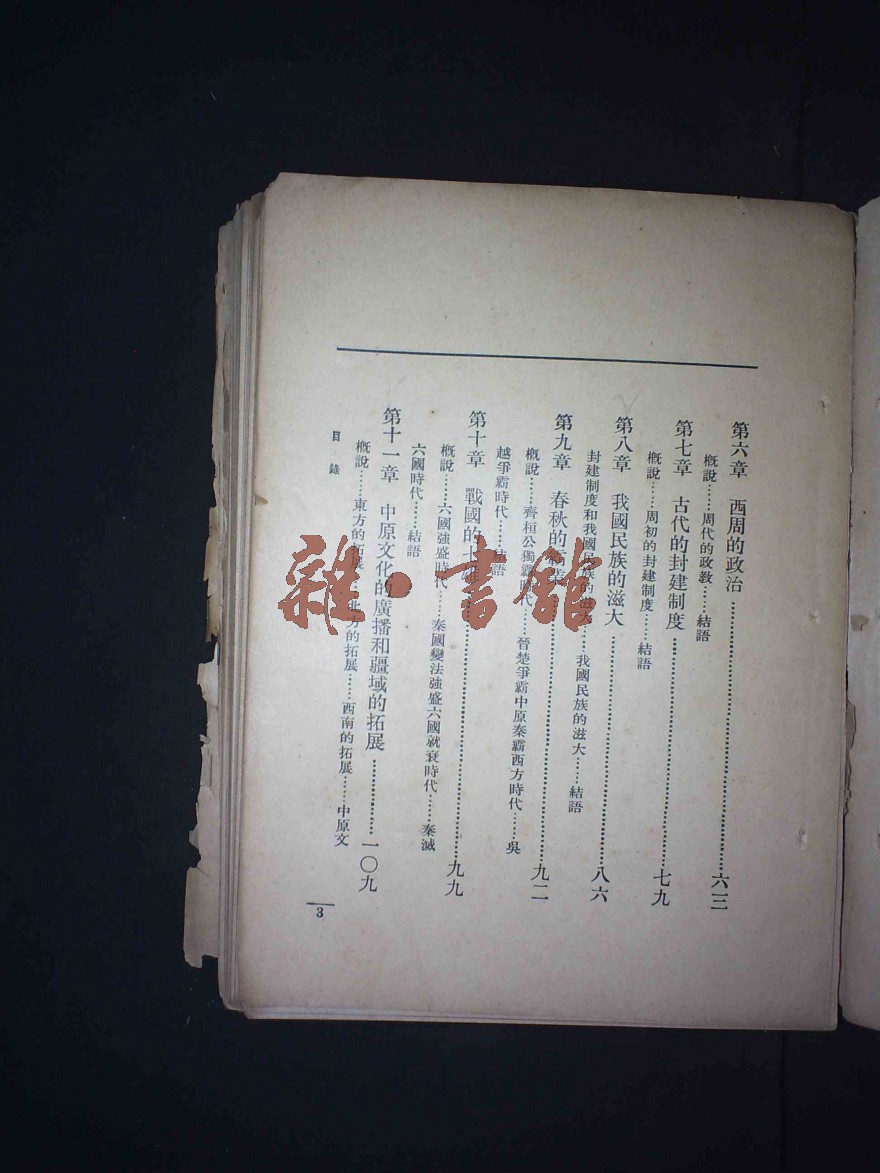 第六章 西周的政治……六三
概說……周代的政教……結語
第七章 古代的封建制度……七九
概說……周初的封建制度……結語
第八章 我國民族的滋大……八六
封建制度和我國民族的滋大……我國民族的滋大……結語
第九章 春秋的霸業……九二
概說……齊桓公獨霸時代……晉楚爭霸中原秦霸西方時代……吳
越爭霸時代……結語
第十章 戰國的七雄……九九
概說……六國強盛時代……秦國變法強盛六國就衰時代……秦滅
六國時代……結語
第十一章 中原文化的廣播和疆域的拓展……一〇九
概說……東方的拓展……北方的拓展……西南的拓展……中原文
目錄
3
雜·書館